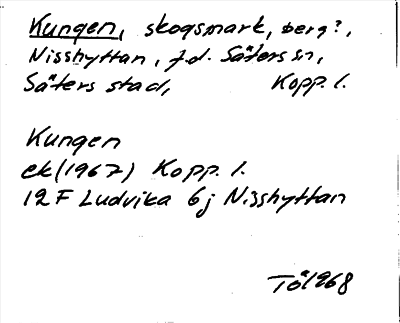 Kungen, skogsmark, berg?,
Nisshyttan, f.d. Säters sn,
Säters stad, Kopp. l.
Kungen
ek (1967) Kopp. l.
12F Ludvika 6j Nisshyttan
TÅ 1968